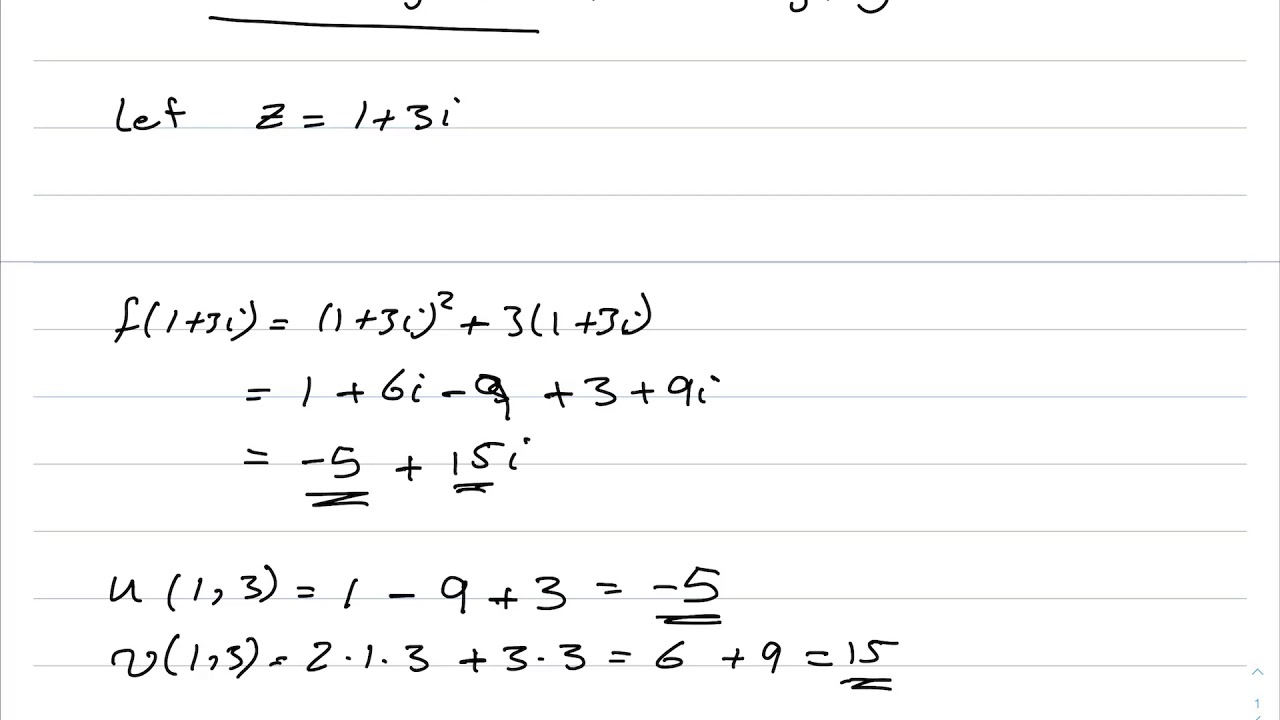 Let z = 1+3i
f(1+3i) = (1+3i)² + 3(1+3i)
= 1 + 6i - 9 + 3 + 9i
= -5 + 15i
u(1,3) = 1 - 9 + 3 = -5
v(1,3) = 2·1·3 + 3·3 = 6 + 9 = 15
1